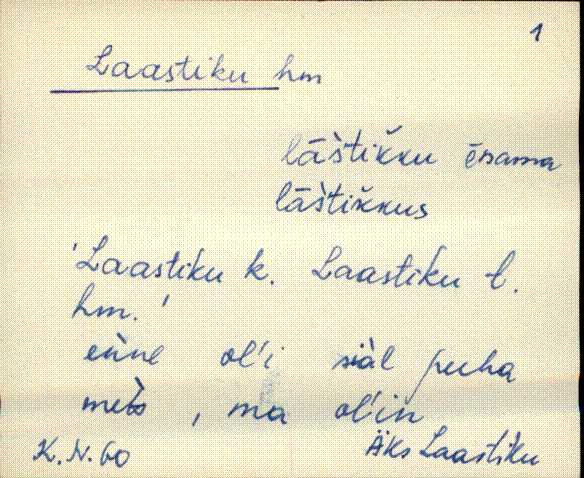 1
Laastiku hm
lāštik̆ku ērama
lāštik̆kus
'Laastiku k. Laastiku t.
hm.'
eǹne ol'i siàl puha
mets̀, ma ol'in
K. N. 60 Äks Laastiku